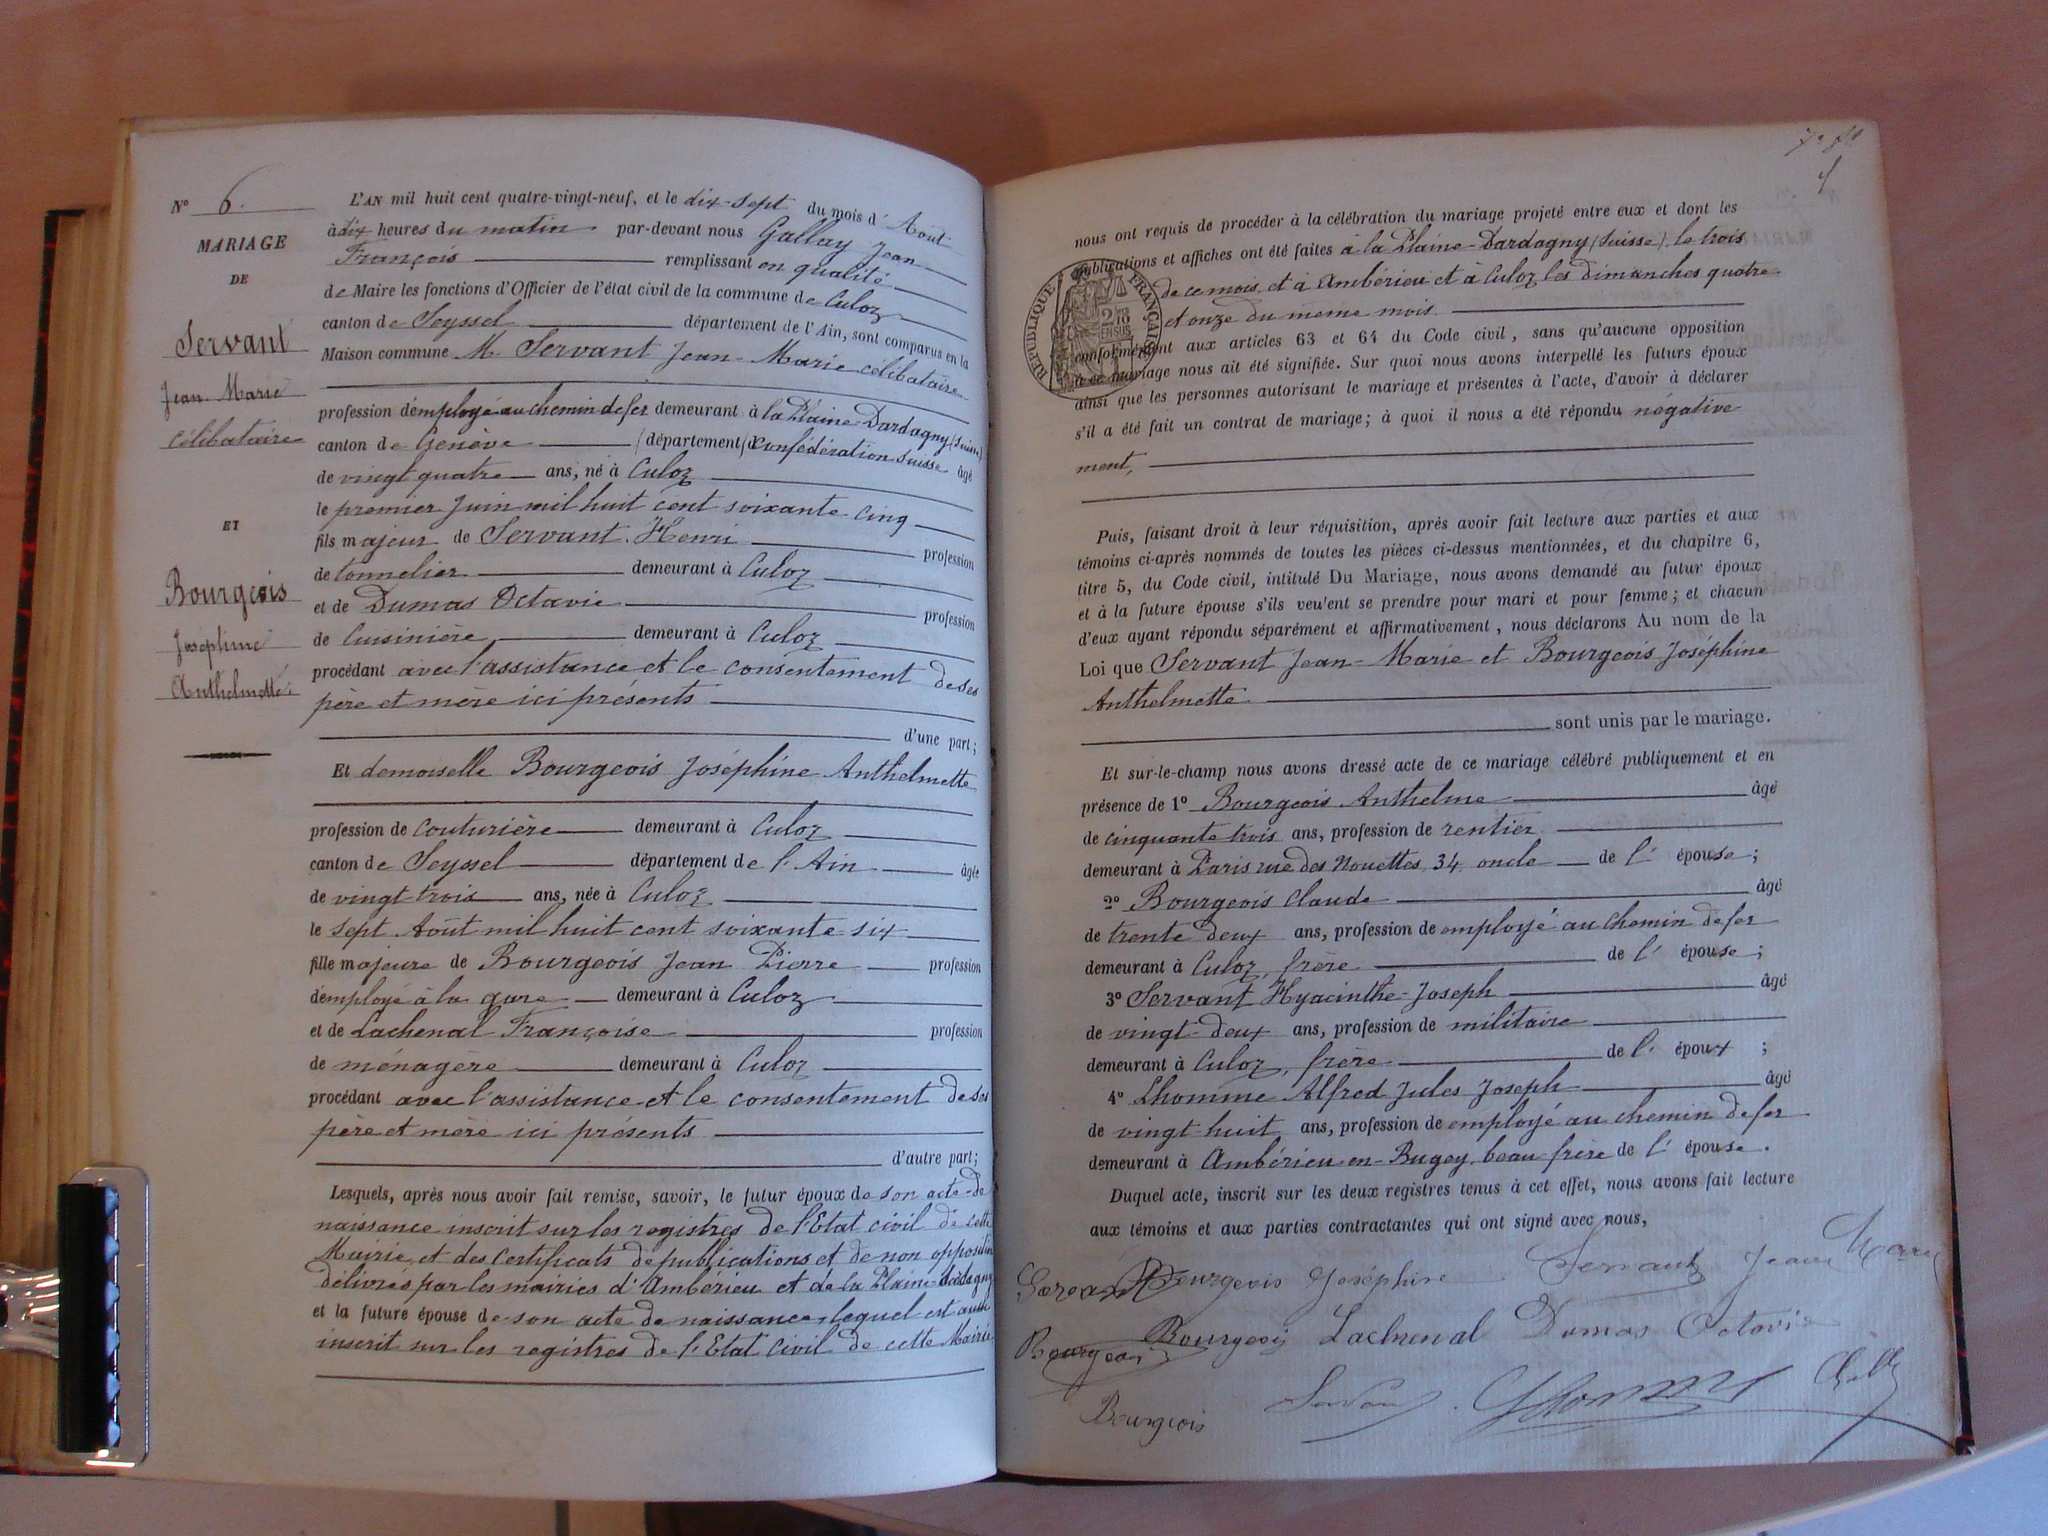 N° 6.
MARIAGE
DE
Servant
Jean-Marie
célibataire
ET
Bourgeois
Joséphine
Anthelmette
L'AN mil huit cent quatre-vingt-neuf, et le dix-sept du mois d'Août
à dix heures du matin par-devant nous Gallay Jean
François remplissant en qualité
de Maire les fonctions d'Officier de l'état civil de la commune de Culoz
canton de Seyssel département de l'Ain, sont comparus en la
Maison commune M. Servant Jean-Marie célibataire
profession d'employé au chemin de fer demeurant à la Plaine-Dardagny (Suisse)
canton de Genève (département) Confédération Suisse âgé
de vingt quatre ans, né à Culoz
le premier Juin mil huit cent soixante cinq
fils majeur de Servant Henri profession
de tonnelier demeurant à Culoz
et de Dumas Octavie profession
de Cuisinière demeurant à Culoz
procédant avec l'assistance et le consentement de ses
père et mère ici présents
d'une part;
Et demoiselle Bourgeois Joséphine Anthelmette
profession de couturière demeurant à Culoz
canton de Seyssel département de l'Ain âgée
de vingt-trois ans, née à Culoz
le sept Août mil huit cent soixante-six
fille majeure de Bourgeois Jean Pierre profession
d'employé à la gare demeurant à Culoz
et de Lachenal Françoise profession
de ménagère demeurant à Culoz
procédant avec l'assistance et le consentement de ses
père et mère ici présents
d'autre part;
Lesquels, après nous avoir fait remise, savoir, le futur époux de son acte de
naissance inscrit sur les registres de l'Etat civil de cette
Mairie et des certificats de publications et de non opposition
délivrés par les mairies d'Ambérieu et de la Plaine-Dardagny
et la future épouse de son acte de naissance, lequel est aussi
inscrit sur les registres de l'Etat Civil de cette Mairie
nous ont requis de procéder à la célébration du mariage projeté entre eux et dont les
publications et affiches ont été faites à la Plaine-Dardagny (Suisse) le trois
de ce mois et à Ambérieu et à Culoz les dimanches quatre
et onze du même mois
conformément aux articles 63 et 64 du Code civil, sans qu'aucune opposition
à ce mariage nous ait été signifiée. Sur quoi nous avons interpellé les futurs époux
ainsi que les personnes autorisant le mariage et présentes à l'acte, d'avoir à déclarer
s'il a été fait un contrat de mariage; à quoi il nous a été répondu négative
ment,
RÉPUBLIQUE FRANÇAISE
Puis, faisant droit à leur réquisition, après avoir fait lecture aux parties et aux
témoins ci-après nommés de toutes les pièces ci-dessus mentionnées, et du chapitre 6,
titre 5, du Code civil, intitulé Du Mariage, nous avons demandé au futur époux
et à la future épouse s'ils veu'ent se prendre pour mari et pour femme; et chacun
d'eux ayant répondu séparément et affirmativement, nous déclarons Au nom de la
Loi que Servant Jean-Marie et Bourgeois Joséphine
Anthelmette
sont unis par le mariage.
Et sur-le-champ nous avons dressé acte de ce mariage célébré publiquement et en
présence de 1° Bourgeois Anthelme âgé
de cinquante trois ans, profession de rentier
demeurant à Paris rue des Nouettes, 34, oncle de l'épouse;
2° Bourgeois Claude âgé
de trente deux ans, profession de employé au chemin de fer
demeurant à Culoz, frère de l'épouse;
3° Servant Hyacinthe-Joseph âgé
de vingt-deux ans, profession de militaire
demeurant à Culoz, frère de l'époux;
4° Lhomme Alfred Jules Joseph âgé
de vingt-huit ans, profession de employé au chemin de fer
demeurant à Ambérieu-en-Bugey beau-frère de l'épouse.
Duquel acte, inscrit sur les deux registres tenus à cet effet, nous avons fait lecture
aux témoins et aux parties contractantes qui ont signé avec nous,
Bourgeois Joséphine Servant Jean Marie
Bourgeois Bourgeois Lachenal Dumas Octavie
Bourgeois Servant Lhomme